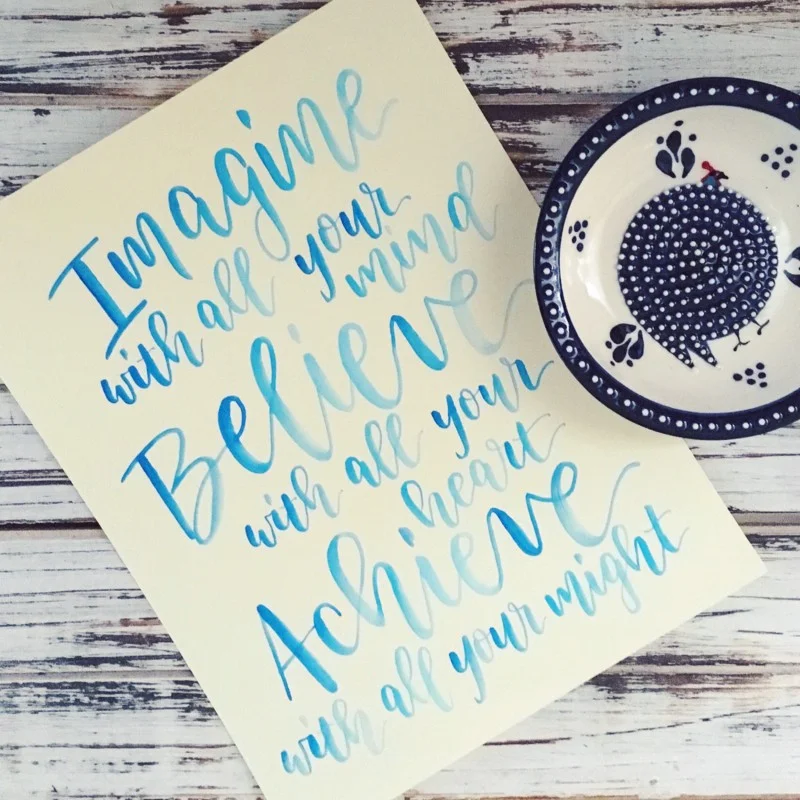 Imagine
with all your
mind
Believe
with all your
heart
Achieve
with all your might